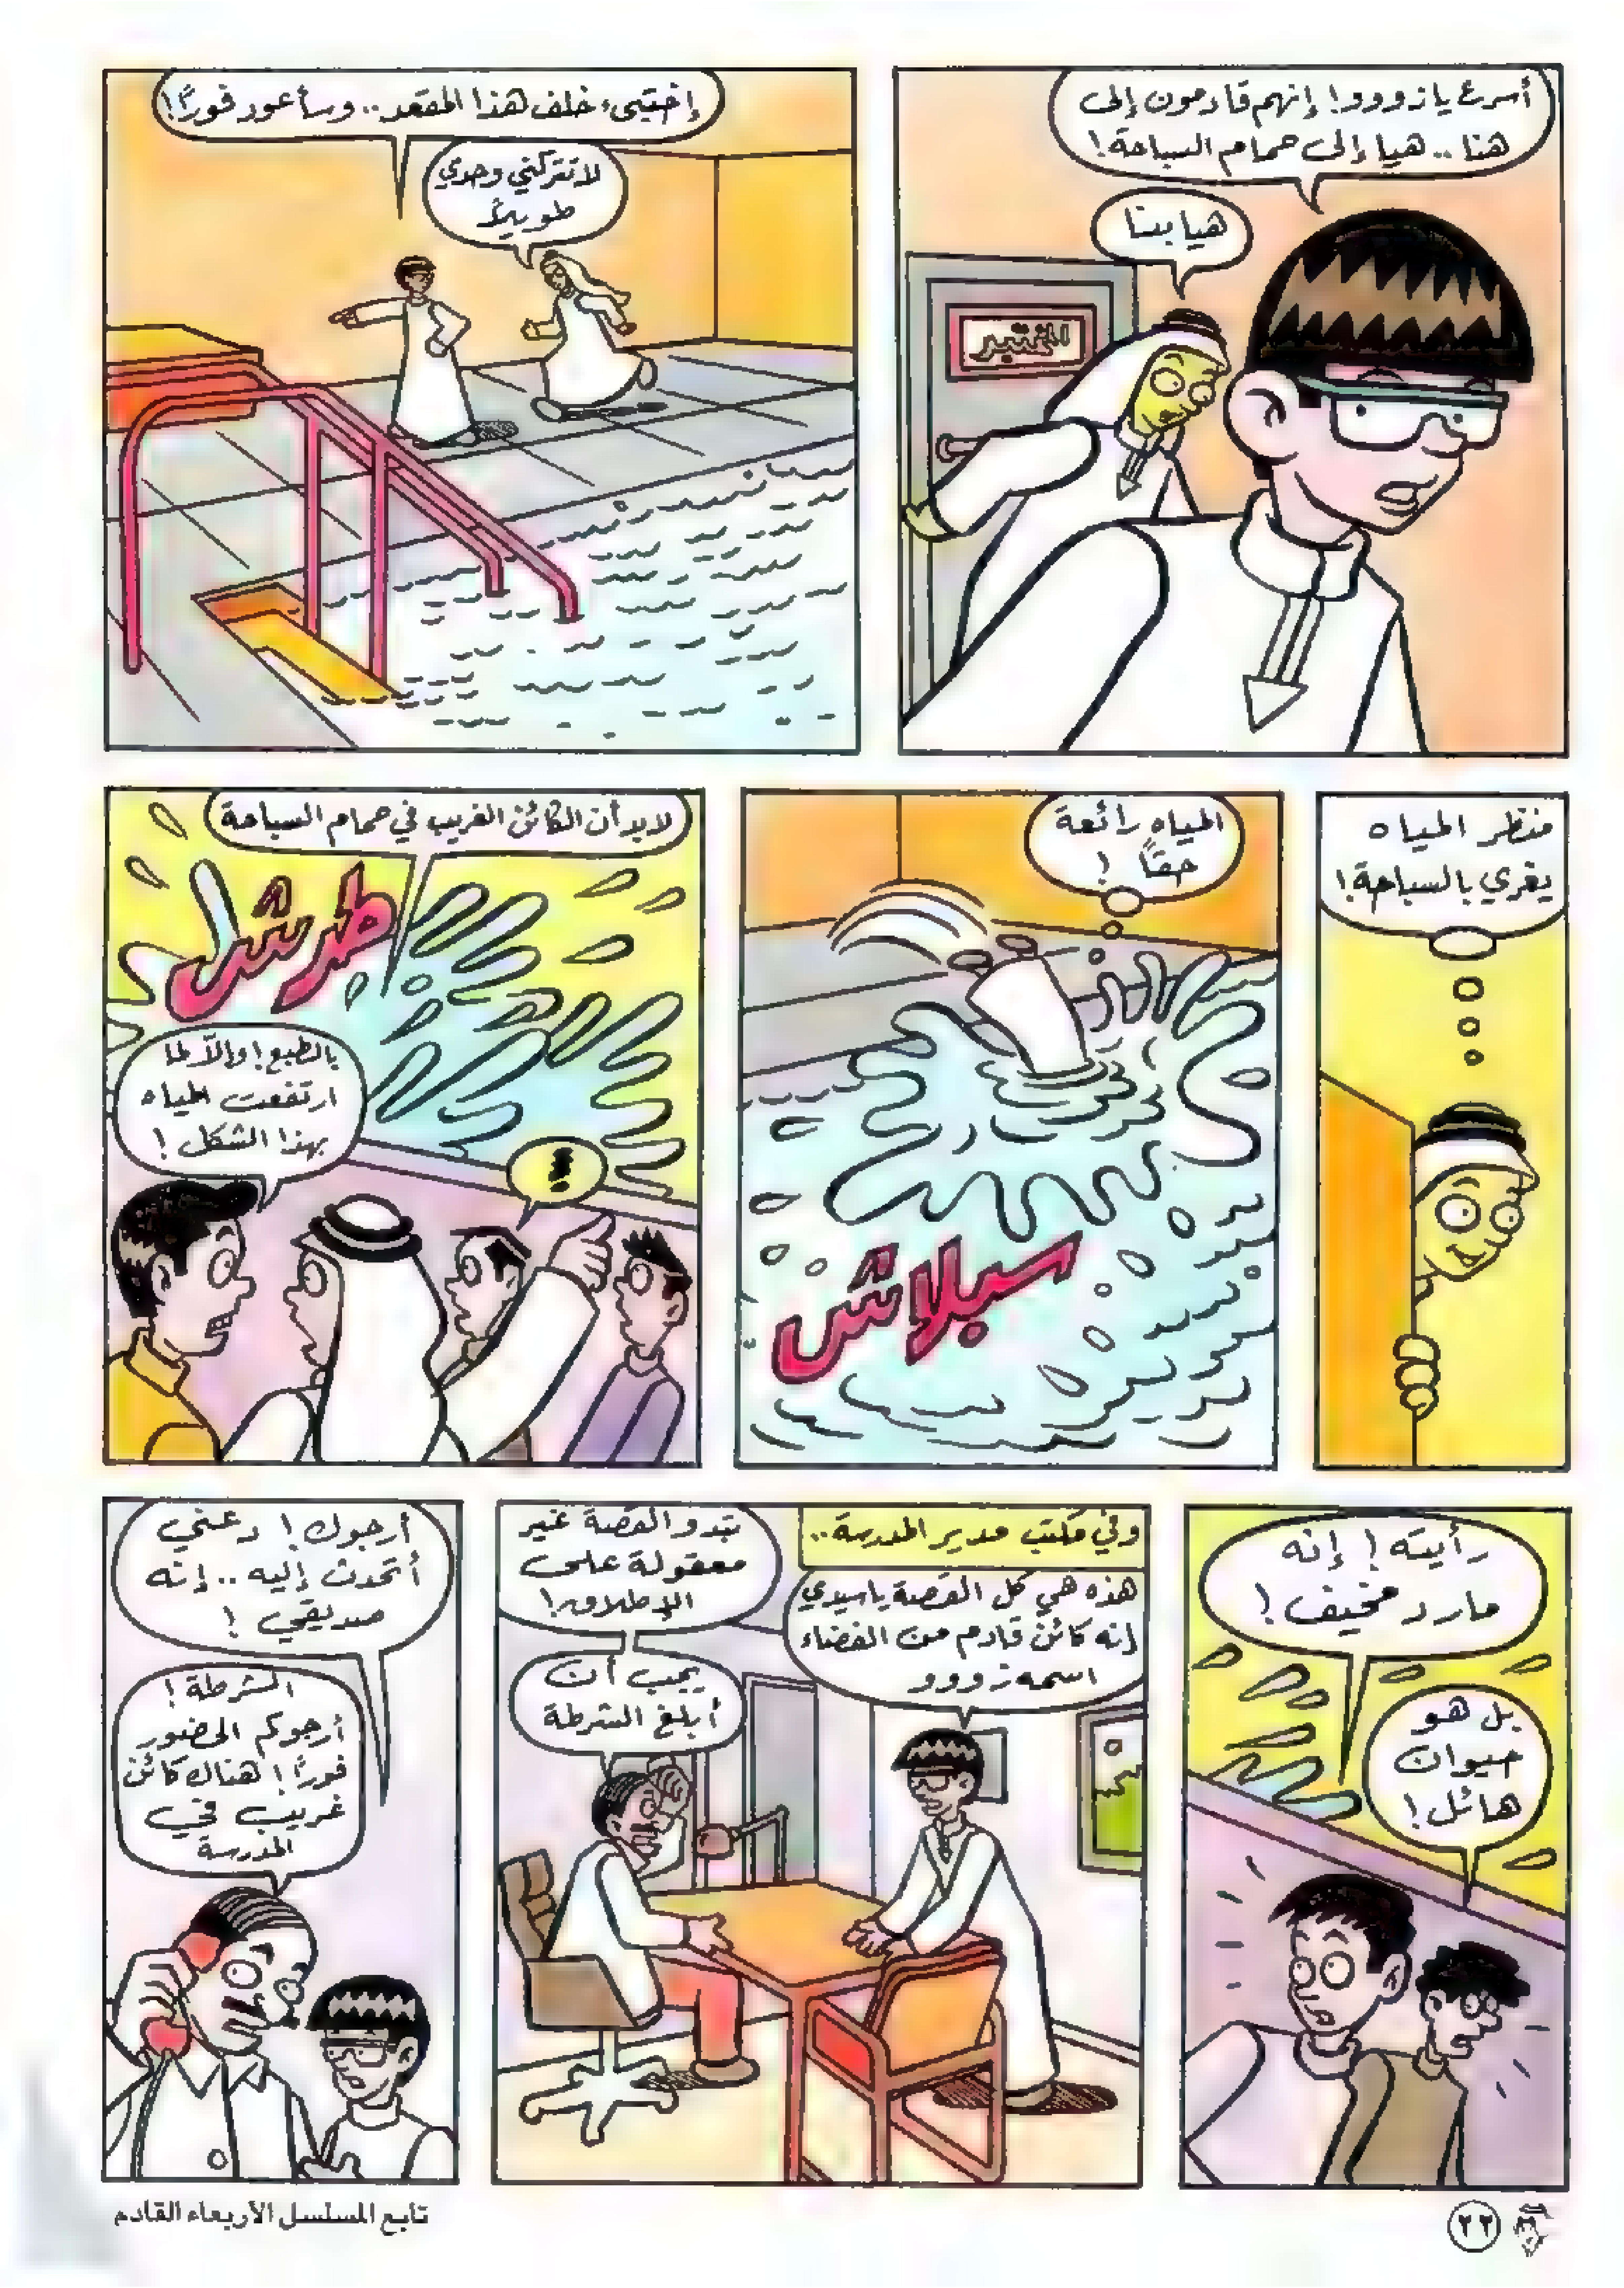 أسرع يا زووو! إنهم قادمون إلى
هنا.. هيا إلى حمام السباحة!
هيا بنا
المختبر
إختبىء خلف هذا المقعد.. وسأعود فورًا!
لا تتركني وحدي
طويلاً
منظر المياه
يغري بالسباحة!
المياه رائعة
حقاً !
سبلاش
لابد أن الكائن الغريب في حمام السباحة
طرش
بالطبع! وإلاّ لما
ارتفعت المياه
بهذا الشكل !
!
رأيته ! إنه
مارد مخيف !
بل هو
حيوان
هائل !
وفي مكتب مدير المدرسة..
هذه هي كل القصة يا سيدي
إنه كائن قادم من الفضاء
اسمه زووو
تبدو القصة غير
معقولة على
الإطلاق!
يجب أن
أبلغ الشرطة
أرجوك ! دعني
أتحدث إليه .. إنه
صديقي !
الشرطة !
أرجوكم الحضور
فورًا ! هناك كائن
غريب في
المدرسة
تابع المسلسل الأربعاء القادم
٢٢